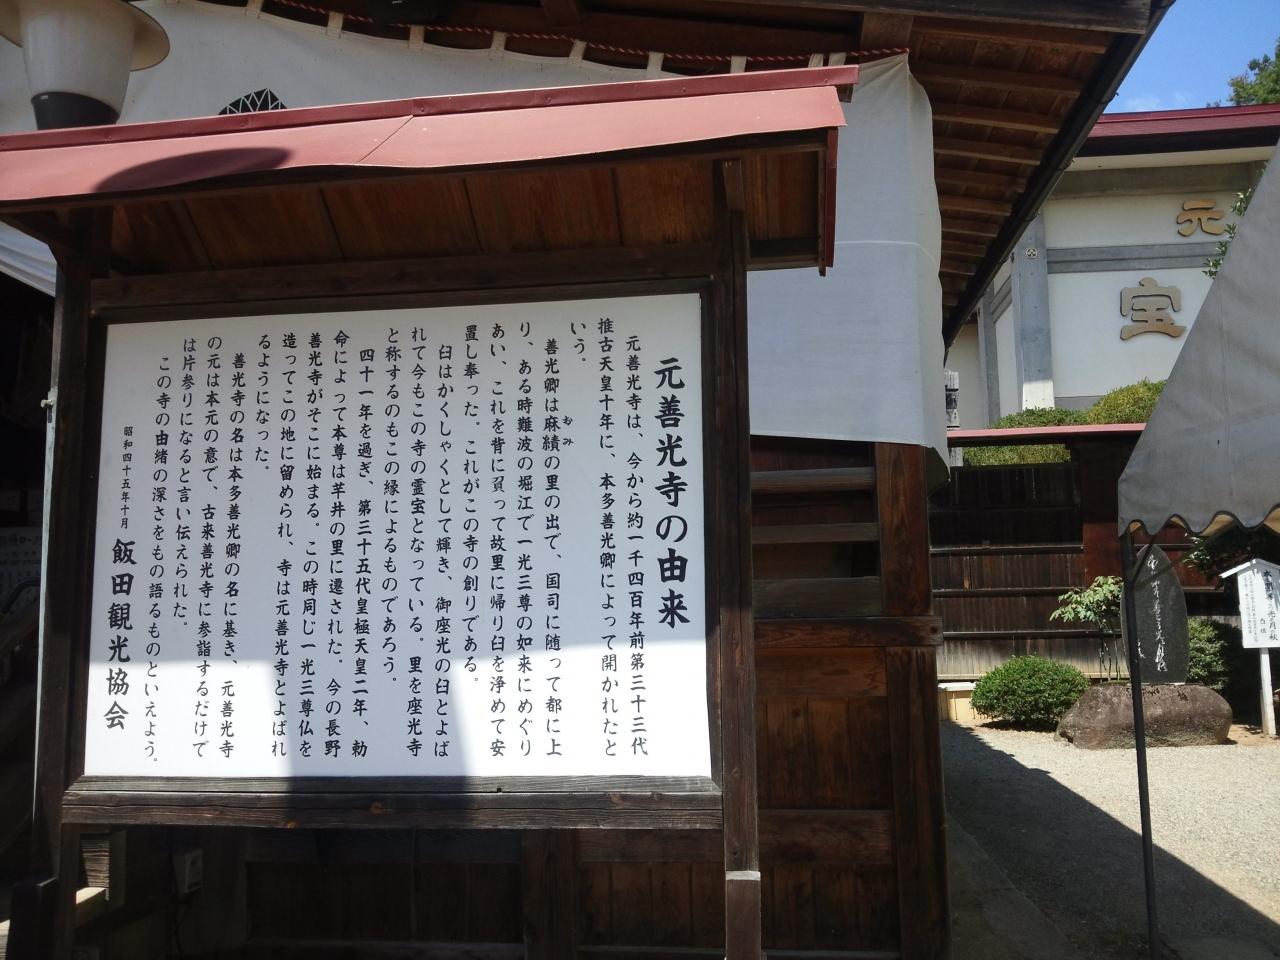 元善光寺の由来
元善光寺は、今から約一千四百年前第三十三代
推古天皇十年に、本多善光卿によって開かれたと
いう。
善光卿は麻績の里の出で、国司に随って都に上
おみ
り、ある時難波の堀江で一光三尊の如来にめぐり
あい、これを背に負って故里に帰り臼を浄めて安
置し奉った。これがこの寺の創りである。
臼はかくしゃくとして輝き、御座光の臼とよば
れて今もこの寺の霊宝となっている。里を座光寺
と称するのもこの縁によるものであろう。
四十一年を過ぎ、第三十五代皇極天皇二年、勅
命によって本尊は芋井の里に遷された。今の長野
善光寺がそこに始まる。この時同じ一光三尊仏を
造ってこの地に留められ、寺は元善光寺とよばれ
るようになった。
善光寺の名は本多善光卿の名に基き、元善光寺
の元は本元の意で、古来善光寺に参詣するだけで
は片参りになると言い伝えられた。
この寺の由緒の深さをもの語るものといえよう。
昭和四十五年十月 飯田観光協会
元
宝